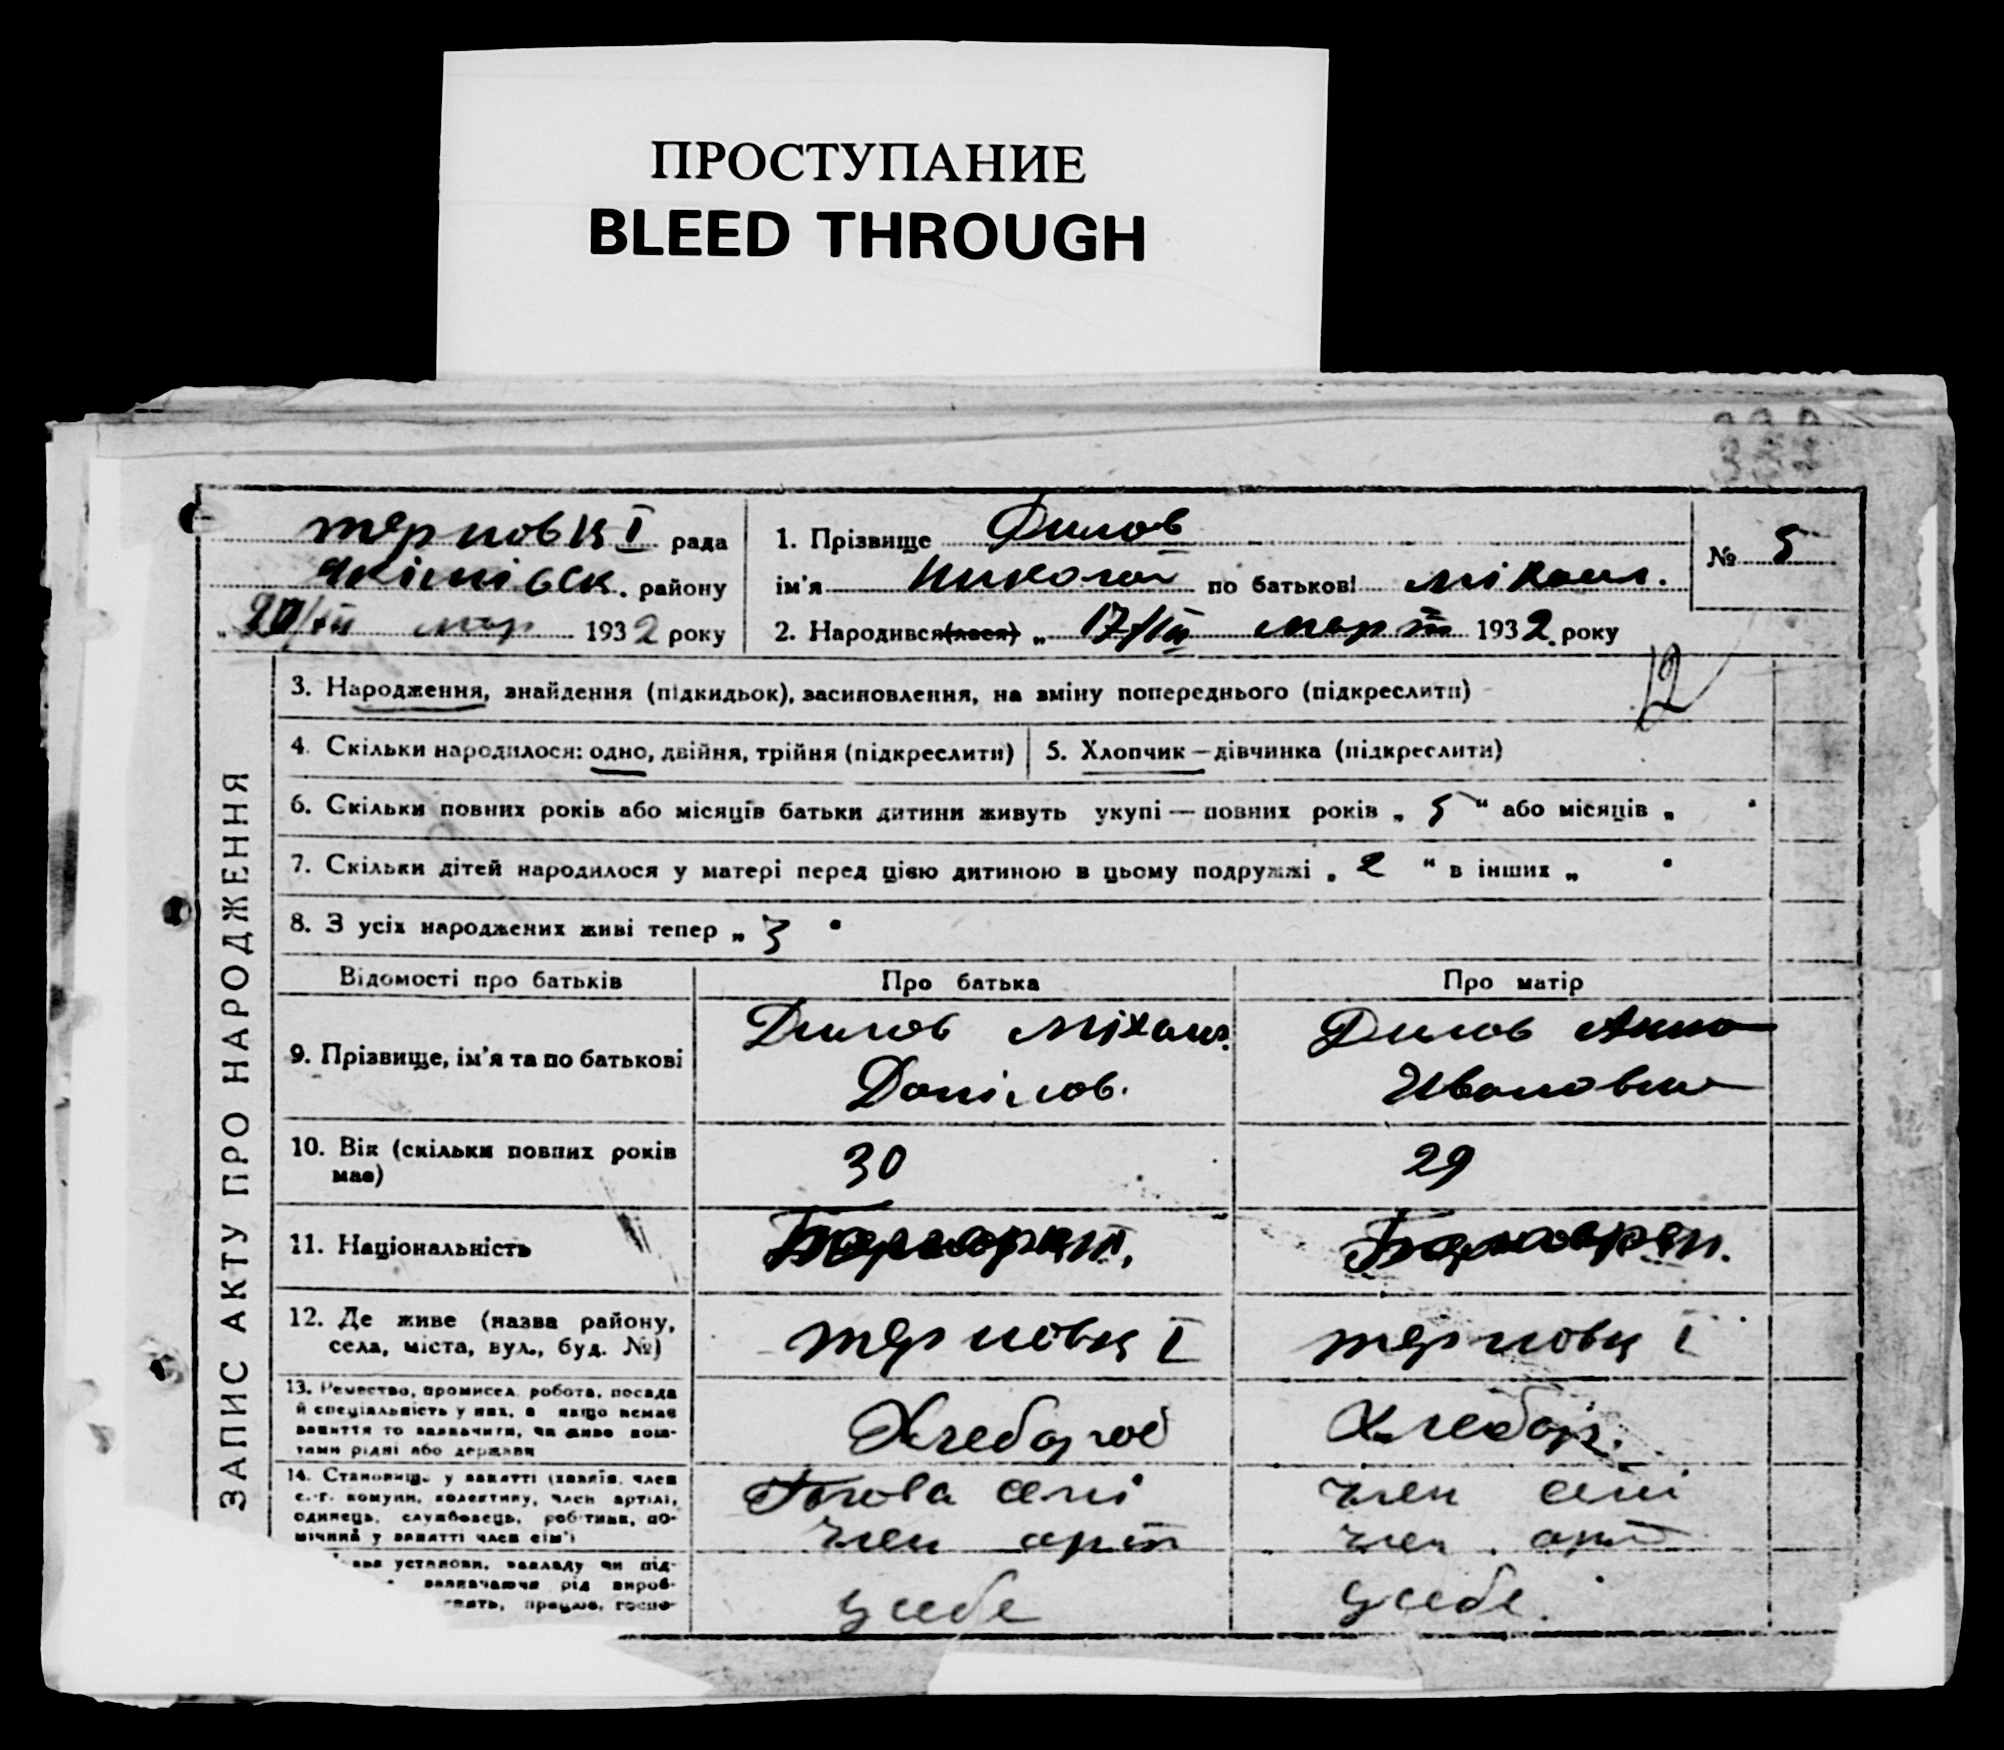 ПРОСТУПАНИЕ
BLEED THROUGH
терновк I рада
Якімівск. району
" 20/III мар 1932 року
1. Прізвище Дилов
ім'я Николай по батькові Міхаил.
2. Народився(лася) „ 17/III март 1932. року
№ 5
12
ЗАПИС АКТУ ПРО НАРОДЖЕННЯ
3. Народження, знайдення (підкидьок), засиновлення, на зміну попереднього (підкреслити)
4. Скільки народилося: одно, двійня, трійня (підкреслити)
5. Хлопчик — дівчинка (підкреслити)
6. Скільки повних років або місяців батьки дитини живуть укупі — повних років „ 5 " або місяців „ "
7. Скільки дітей народилося у матері перед цією дитиною в цьому подружжі „ 2 " в інших „ "
8. З усіх народжених живі тепер „ 3 "
Відомості про батьків
Про батька
Про матір
9. Прізвище, ім'я та по батькові
Дилов Міхаил.
Данілов.
Дилов Анна
Ивановна
10. Вік (скільки повних років
має)
30
29
11. Національність
12. Де живе (назва району,
села, міста, вул., буд. №)
терновк I
терновк I
13. Ремество, промисел, робота, посада
й спеціальність у них, а якщо немає
заняття то зазначити, чи живе кош-
тами рідні або держави
Хлебороб
Хлебор.
14. Становище у занятті (хазяїн, член
с.-г. комуни, колективу, член артілі,
одинець, службовець, робітник, по-
мічний у занятті член сім'ї)
Глова семі
член арт
член семі
член арт
установи, закладу чи під-
зазначаючи рід вироб-
працює, госпо-
у себе
у себе.